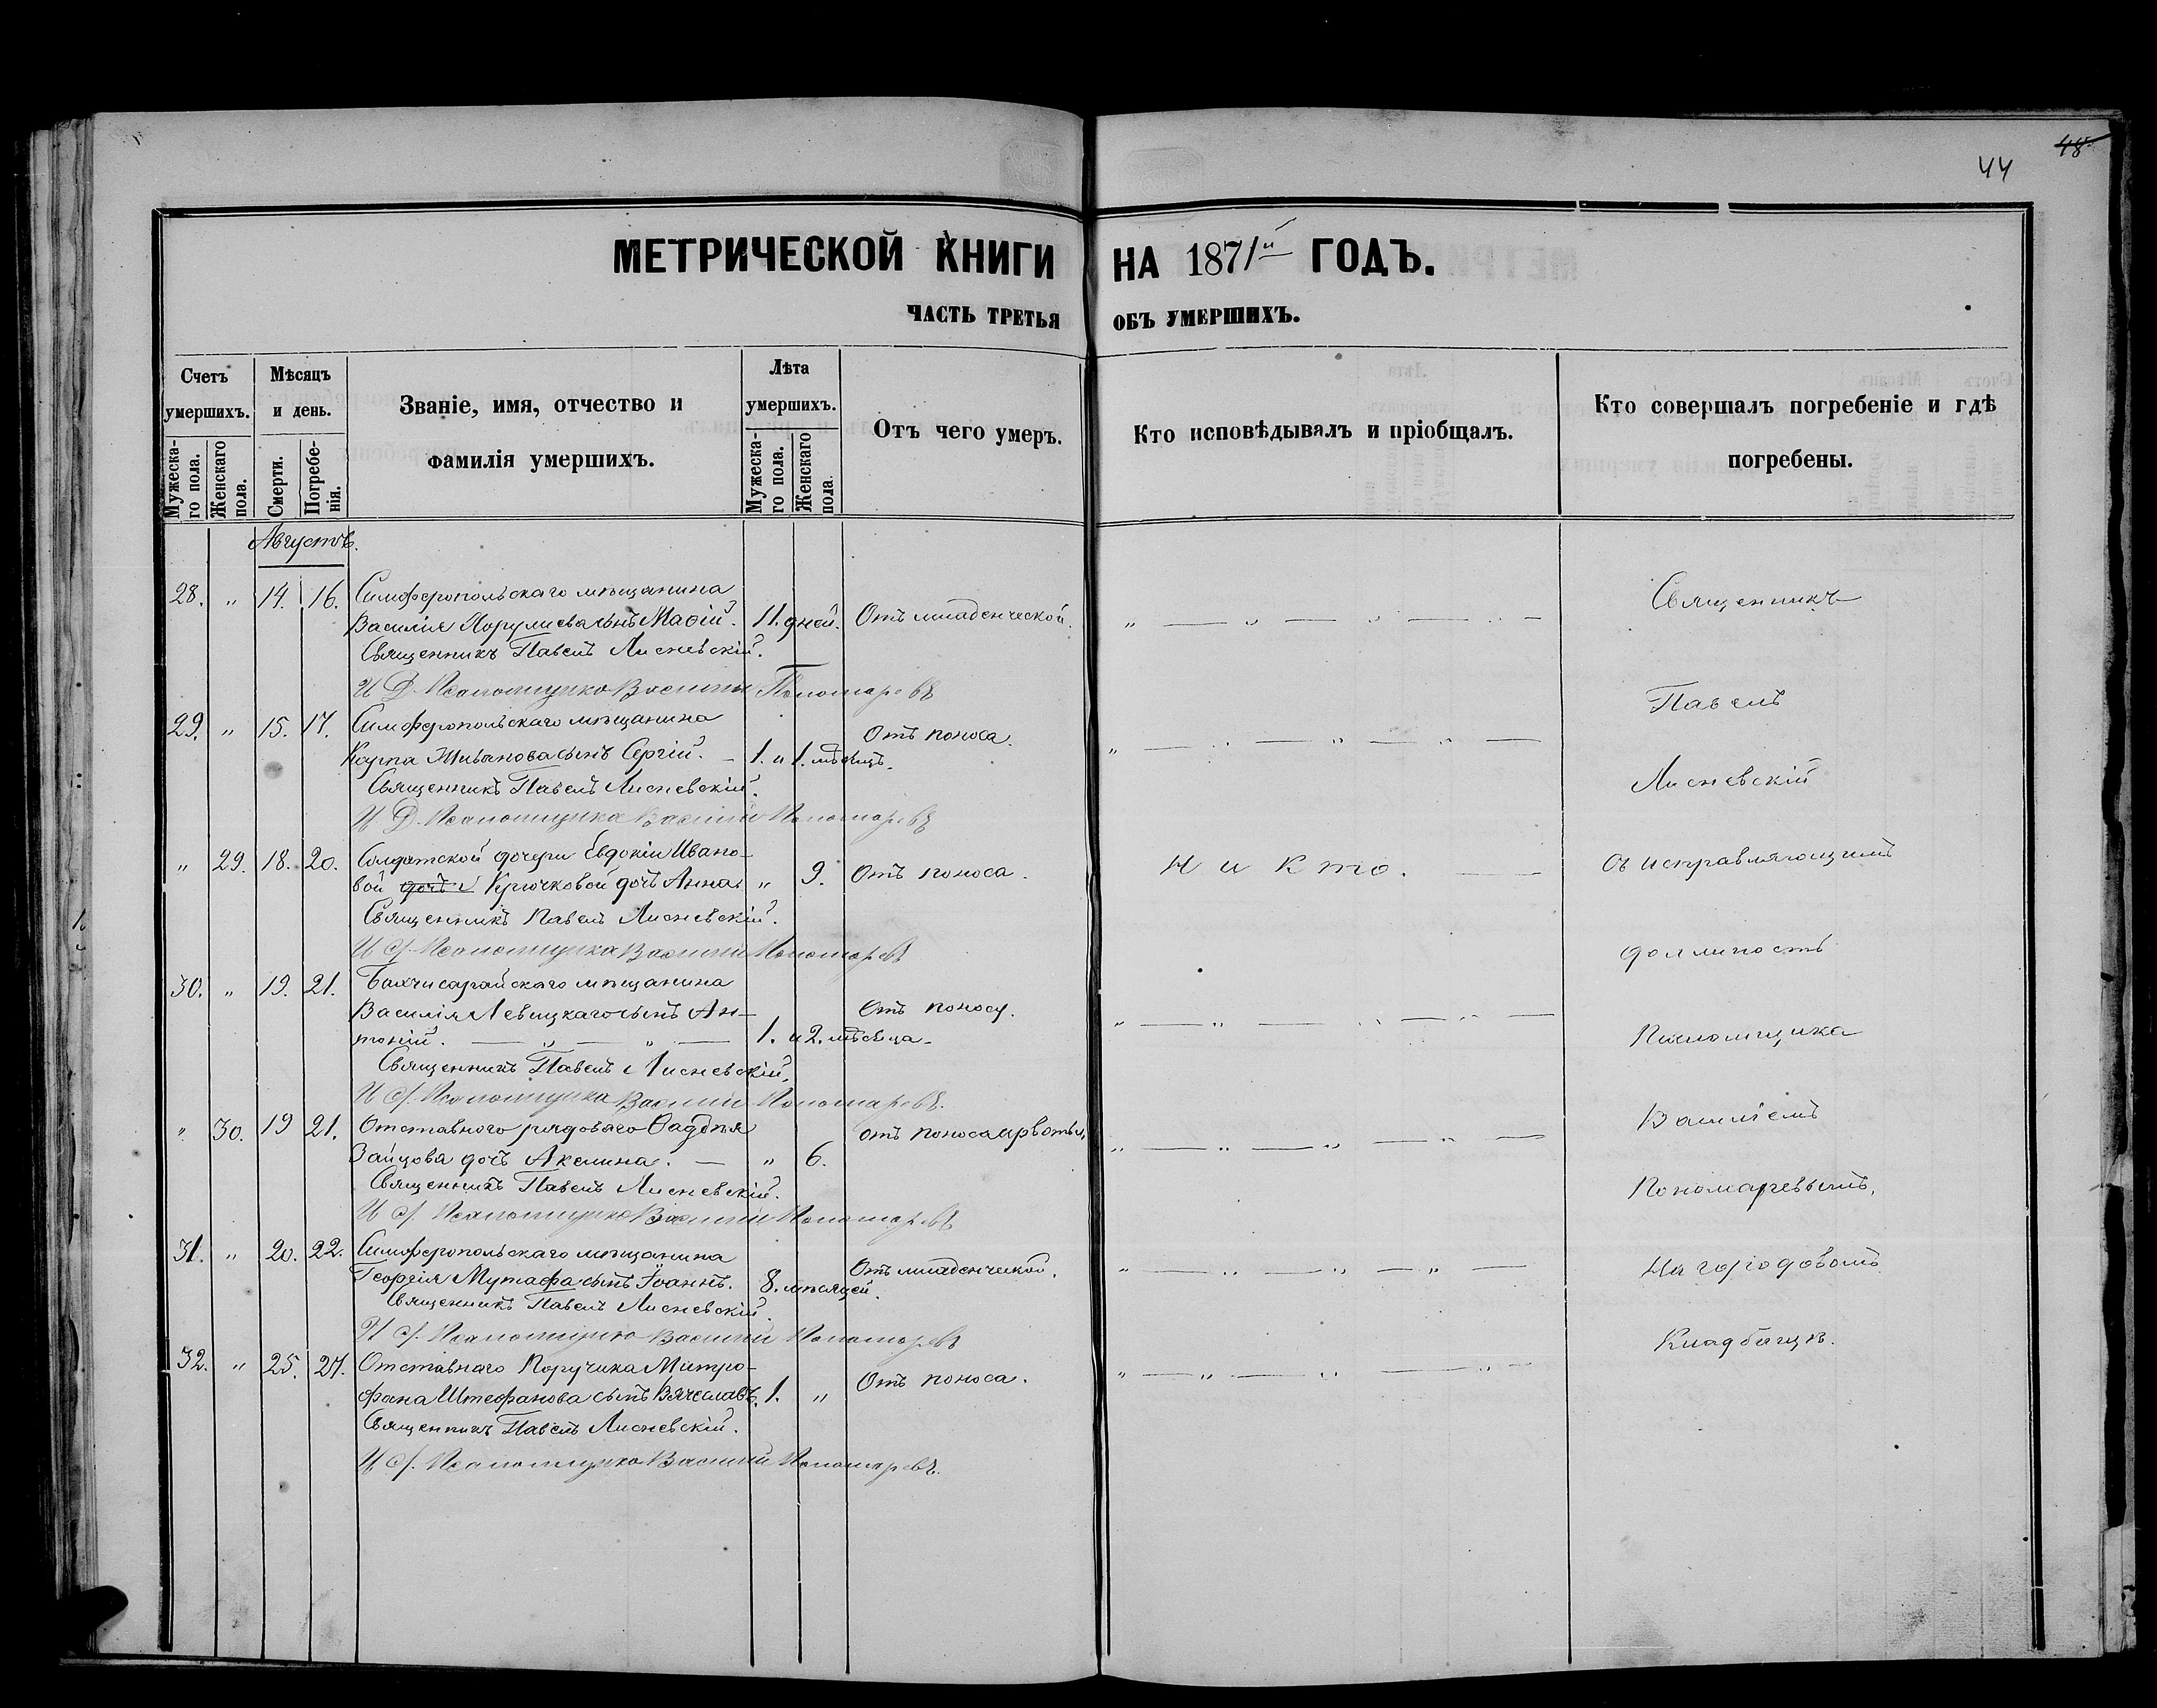 44
48
МЕТРИЧЕСКОЙ КНИГИ НА 1871й ГОДЪ.
ЧАСТЬ ТРЕТЬЯ ОБЪ УМЕРШИХЪ.
Счетъ умершихъ.
Мужескаго пола.
Женскаго пола.
Мѣсяцъ и день.
Смерти.
Погребенія.
Званіе, имя, отчество и фамилія умершихъ.
Лѣта умершихъ.
Мужескаго пола.
Женскаго пола.
Отъ чего умеръ.
Кто исповѣдывалъ и пріобщалъ.
Кто совершалъ погребеніе и гдѣ погребены.
Августъ.
28. „ 14. 16. Симферопольскаго мѣщанина
Василія сынъ 11. дней. Отъ младенческой.
Священникъ Павелъ Лисневскій.
И Д. Псаломщика Василій Пономаревъ
29. „ 15. 17. Симферопольскаго мѣщанина
Карпа Живанова сынъ Сергій. 1. и 1. мѣсяцъ. Отъ поноса.
Священникъ Павелъ Лисневскій.
И Д. Псаломщика Василій Пономаревъ
„ 29. 18. 20. Солдатской дочери Евдокіи Ивано-
вой дочь Крючковой дочь Анна. „ 9. Отъ поноса. Никто.
Священникъ Павелъ Лисневскій.
И Д. Псаломщика Василій Пономаревъ
30. „ 19. 21. Бахчисарайскаго мѣщанина
Василія Левицкаго сынъ Ан- Отъ поноса.
тоній. — „ — „ — 1. и 2. мѣсяца.
Священникъ Павелъ Лисневскій.
И Д. Псаломщика Василій Пономаревъ.
„ 30. 19 21. Отставного рядоваго Фадѣя Отъ поноса и рвоты.
Зайцова дочь Акелина. — „ 6.
Священникъ Павелъ Лисневскій.
И Д. Псаломщика Василій Пономаревъ
31. „ 20. 22. Симферопольскаго мѣщанина
Георгія Мутафа сынъ Іоаннъ. 8. мѣсяцей. Отъ младенческой.
Священникъ Павелъ Лисневскій.
И Д. Псаломщика Василій Пономаревъ
32. „ 25. 27. Отставнаго Поручика Митро-
фана Штефанова сынъ Вячеславъ. 1. „ Отъ поноса.
Священникъ Павелъ Лисневскій.
И Д. Псаломщика Василій Пономаревъ.
Священникъ
Павелъ
Лисневскій
съ исправляющимъ
должность
Псаломщика
Василіемъ
Пономаревымъ,
На городовомъ
Кладбищѣ.